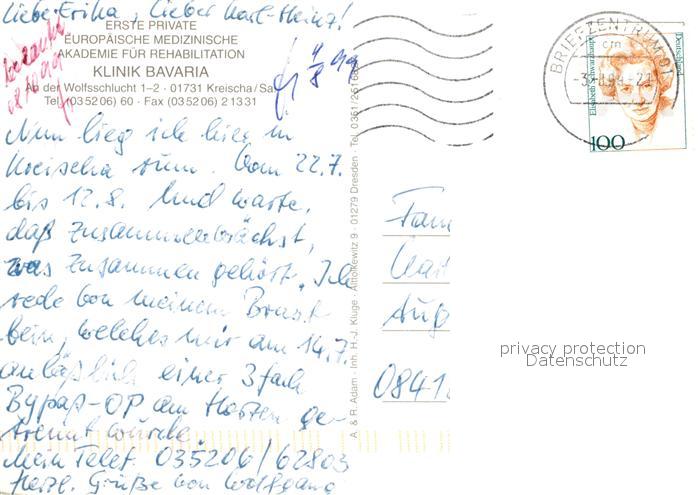 Liebe Erika, Lieber Karl-Heinz!
ERSTE PRIVATE
EUROPÄISCHE MEDIZINISCHE
AKADEMIE FÜR REHABILITATION
KLINIK BAVARIA
An der Wolfsschlucht 1–2 · 01731 Kreischa/Sa
Tel. (035206) 60 · Fax (035206) 21331
Nun lieg ich hier in
Kreischa rum. Vom 22.7.
bis 12.8. Und warte,
daß zusammenwächst,
was zusammen gehört. Ich
rede von meinem Brust
bein, welches mir am 14.7.
anläßlich einer 3fach
Bypaß-OP am Herzen ge-
trennt wurde.
Mein Telef. 035206/62803
Herzl. Grüße von Wolfgang
A. & R. Adam - Inh. H.-J. Kluge · Alttolkewitz 9 · 01279 Dresden · Tel. 0351/251
BRIEFZENTRUM 01
Deutschland
Elisabeth Schwarzhaupt
100
Fam
Aug
0841
privacy protection
Datenschutz